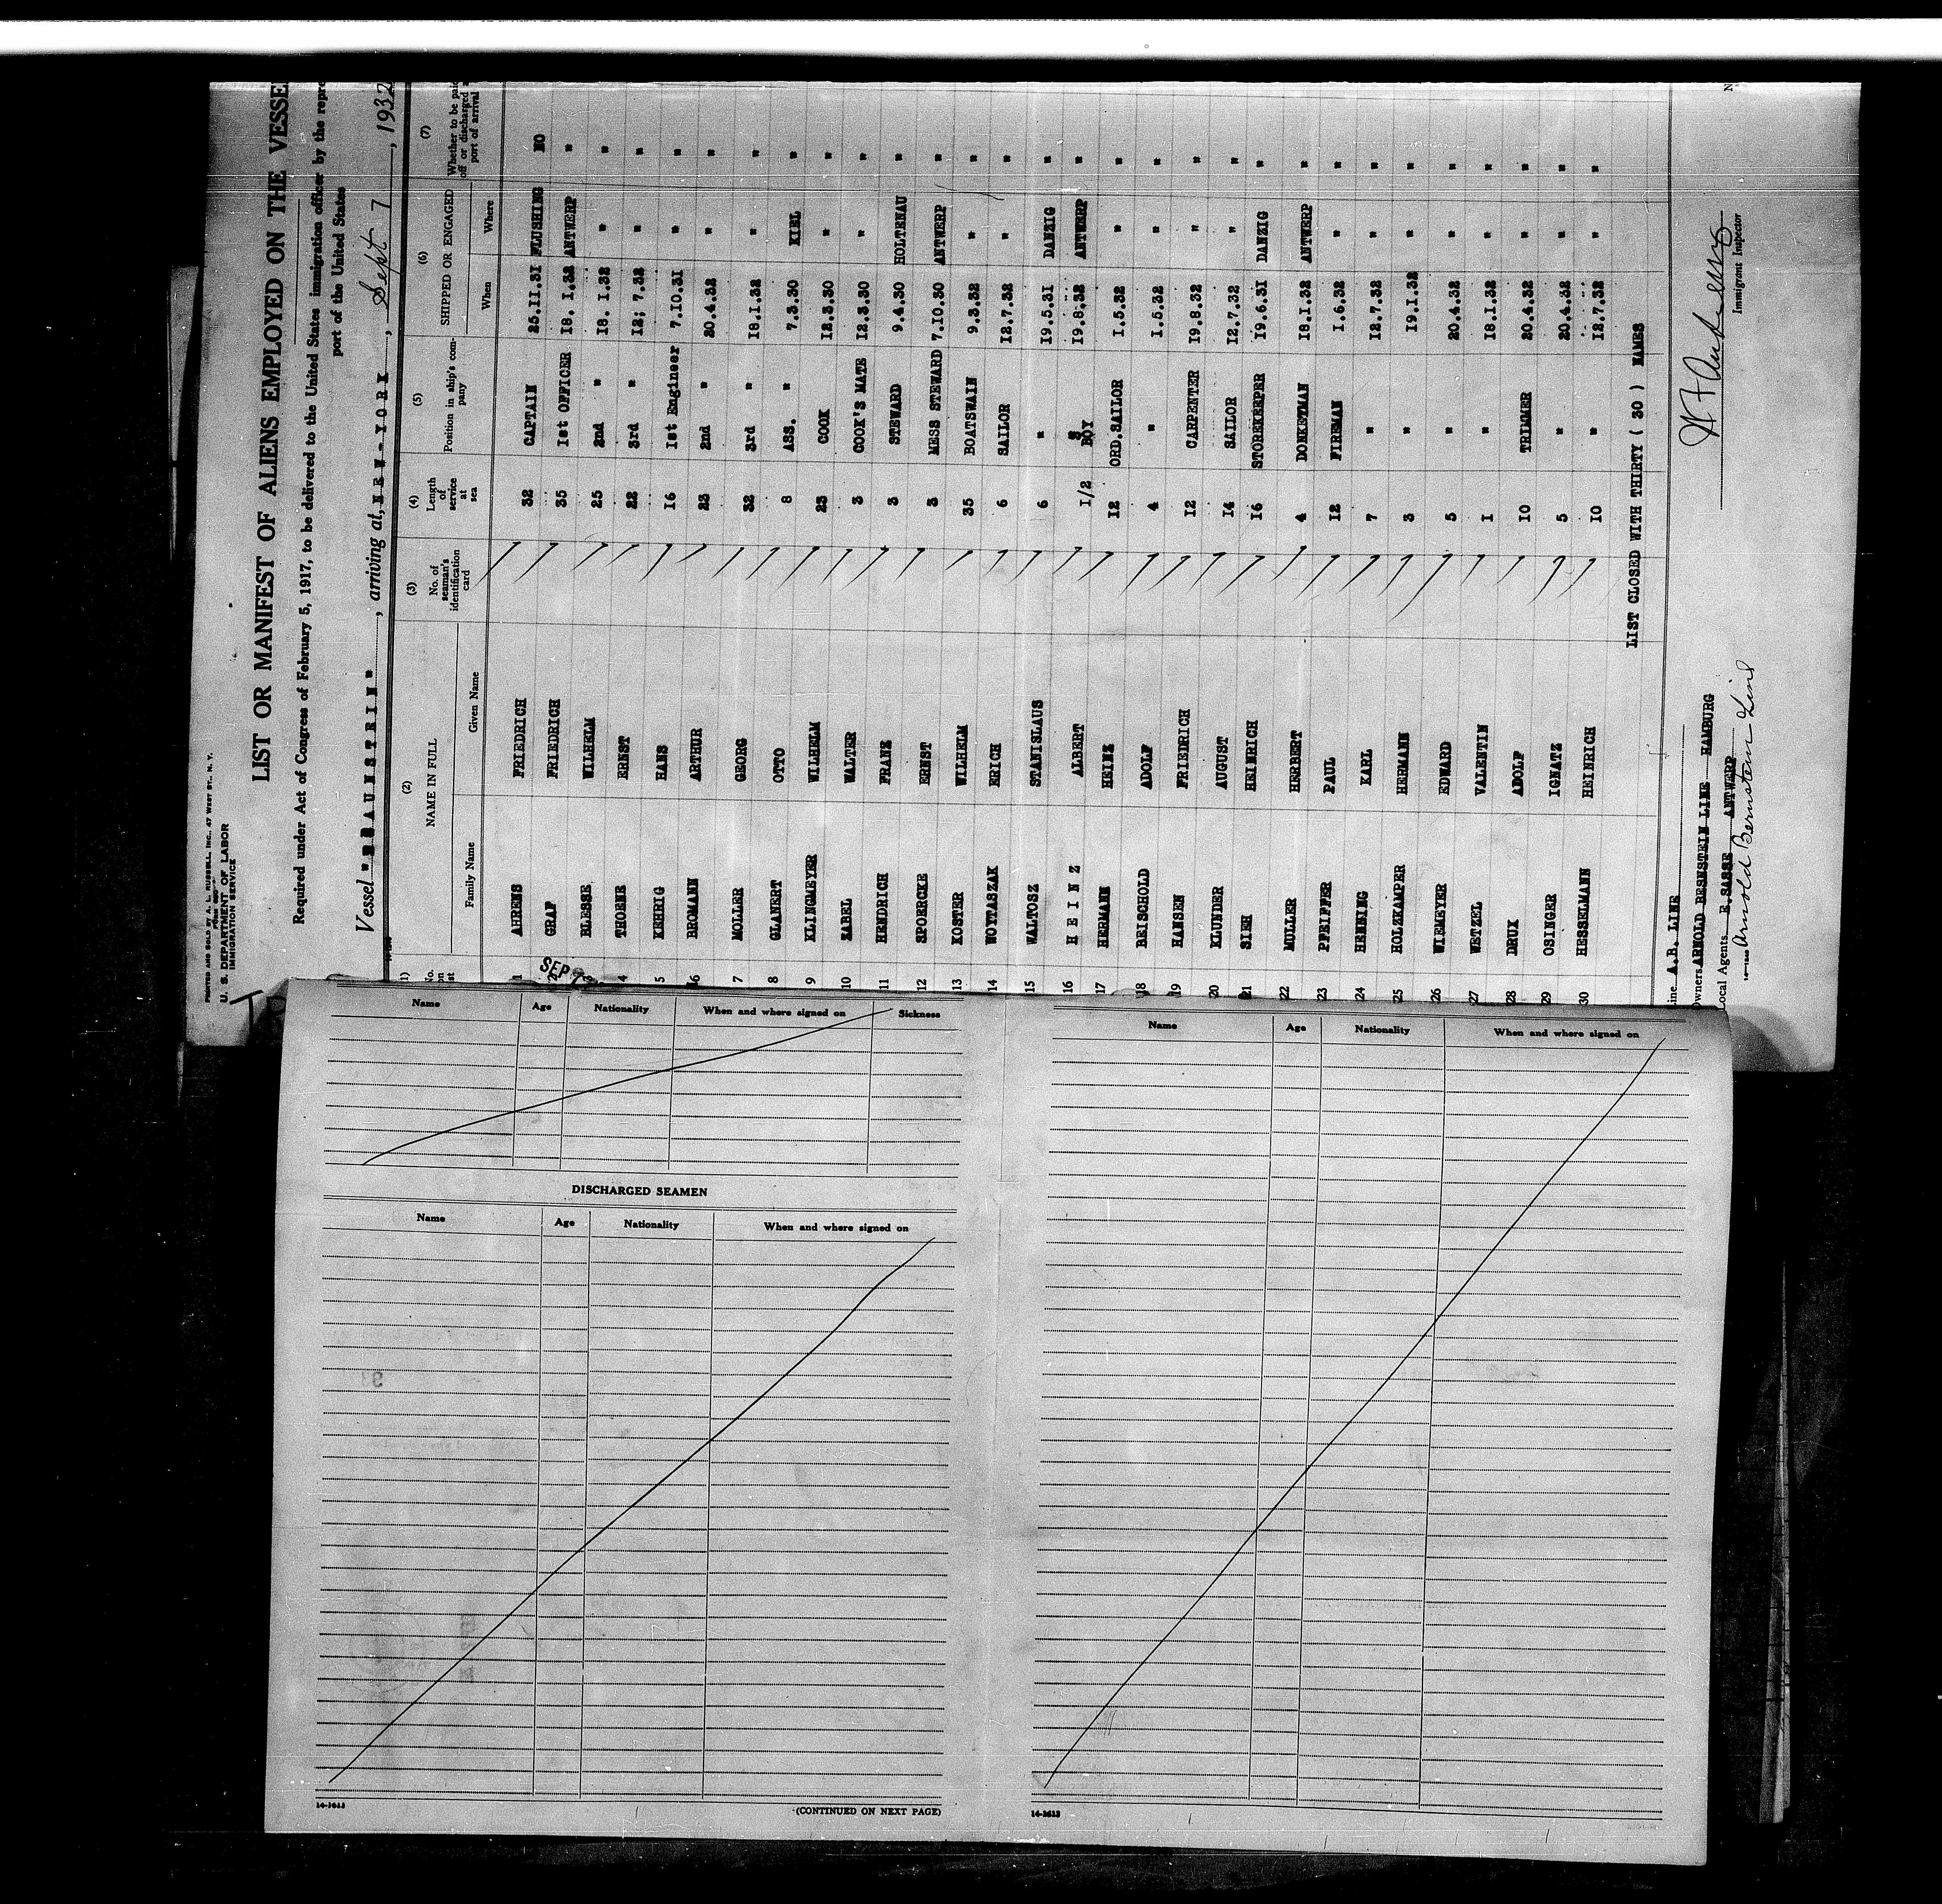 PRINTED AND SOLD BY A. L. RUSSELL, INC., 47 WEST ST., N. Y.
U. S. DEPARTMENT OF LABOR
IMMIGRATION SERVICE
LIST OR MANIFEST OF ALIENS EMPLOYED ON THE VESSE
Required under Act of Congress of February 5, 1917, to be delivered to the United States immigration officer by the repre
port of the United States
Vessel "BRAUNSTEIN", arriving at, NEW-YORK, Sept 7, 1932
(1) (2) (3) (4) (5) (6) (7)
No. on list NAME IN FULL No. of seaman's identification card Length of service at sea Position in ship's company SHIPPED OR ENGAGED Whether to be paid off or discharged port of arrival
Family Name Given Name When Where
1 AHRENS FRIEDRICH 32 CAPTAIN 25.11.31 FLUSHING NO
2 GRAF FRIEDRICH 35 1st OFFICER 18. 1.32 ANTWERP "
SEP 7
3 BLESSE WILHELM 25 2nd " 18. 1.32 " "
4 THOENE ERNST 22 3rd " 12; 7.32 " "
5 KEHRIG HANS 16 1st Engineer 7.10.31 " "
6 BROMANN ARTHUR 23 2nd " 20.4.32 " "
7 MOLLER GEORG 32 3rd " 18.1.32 " "
8 GLANERT OTTO 8 ASS. " 7.3.30 KIEL "
9 KLINGMEYER WILHELM 23 COOK 12.3.30 " "
10 ZABEL WALTER 3 COOK'S MATE 12.3.30 " "
11 HENDRICH FRANZ 3 STEWARD 9.4.30 HOLTENAU "
12 SPOERCKE ERNST 3 MESS STEWARD 7.10.30 ANTWERP "
13 KOSTER WILHELM 35 BOATSWAIN 9.3.32 " "
14 WOTTASZAK ERICH 6 SAILOR 12.7.32 " "
15 WALTOSZ STANISLAUS 6 " 19.5.31 DANZIG "
16 H E I N Z ALBERT 1/2 BOY 19.8.32 ANTWERP "
17 HERMANN HEINZ 12 ORD.SAILOR 1.5.32 " "
18 BEISCHOLD ADOLF 4 " 1.5.32 " "
19 HANSEN FRIEDRICH 12 CARPENTER 19.8.32 " "
20 KLUNDER AUGUST 14 SAILOR 12.7.32 " "
21 SIEH HEINRICH 16 STOREKEEPER 19.6.31 DANZIG "
22 MULLER HERBERT 4 DONKEYMAN 18.1.32 ANTWERP "
23 PFEIFFER PAUL 12 FIREMAN 1.6.32 " "
24 HENNING KARL 7 " 12.7.32 " "
25 HOLZKAMPER HERMANN 3 " 19.1.32 " "
26 WIEMEYER EDWARD 5 " 20.4.32 " "
27 WETZEL VALENTIN 1 " 18.1.32 " "
28 DRUX ADOLF 10 TRIMMER 20.4.32 " "
29 OSINGER IGNATZ 5 " 20.4.32 " "
30 HESSELMANN HEINRICH 10 " 12.7.32 " "
LIST CLOSED WITH THIRTY ( 30 ) NAMES
Line A.B. LINE
Owners ARNOLD BERNSTEIN LINE HAMBURG
Local Agents E.SASSE ANTWERP
Arnold Bernstein Line
Immigrant Inspector
Name Age Nationality When and where signed on Sickness
DISCHARGED SEAMEN
Name Age Nationality When and where signed on
14-1613
(CONTINUED ON NEXT PAGE)
Name Age Nationality When and where signed on
14-1613